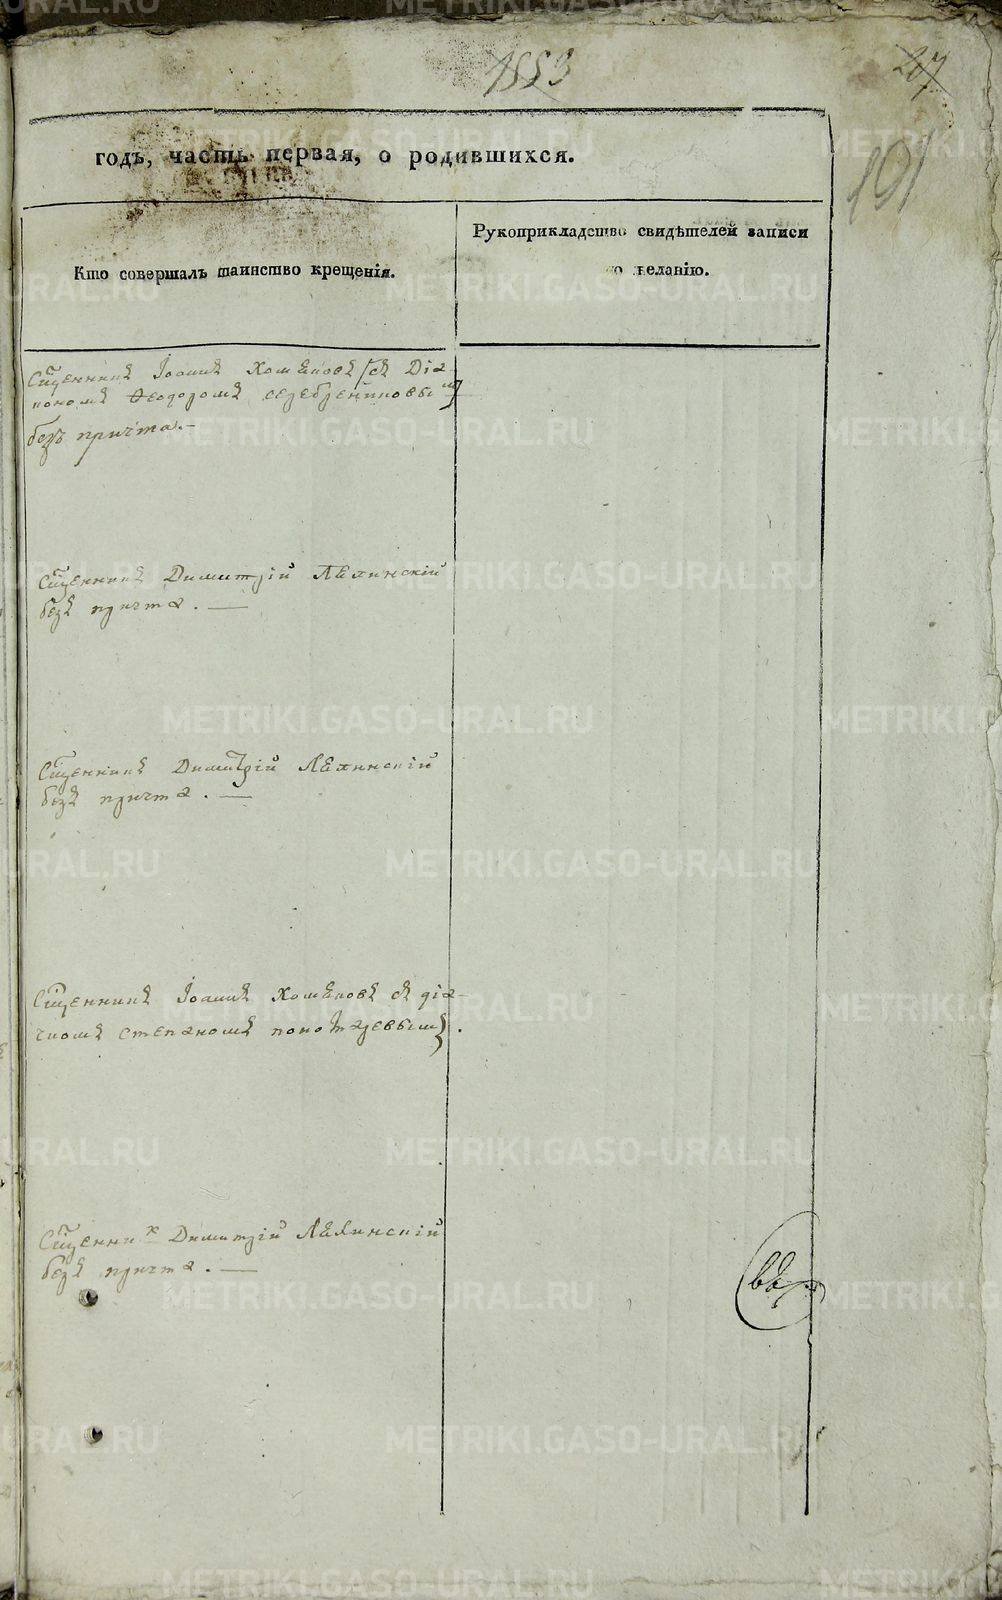 1883
207
191
годъ, часть первая, о родившихся.
Кто совершалъ таинство крещенія.
Рукоприкладство свидѣтелей записи
по желанію.
Сщенникъ Іоаннъ Хомяковъ съ Діа-
кономъ Ѳеодоромъ серебрениковымъ
безъ причта.-
Сщенникъ Димитрій Лялинскій
безъ причта. —
Сщенникъ Димитрій Лялинскій
безъ причта. —
Сщенникъ Іоаннъ Хомяковъ съ діа-
степаномъ
Сщенникъ Димитрій Лялинскій
безъ причта. —
METRIKI.GASO-URAL.RU